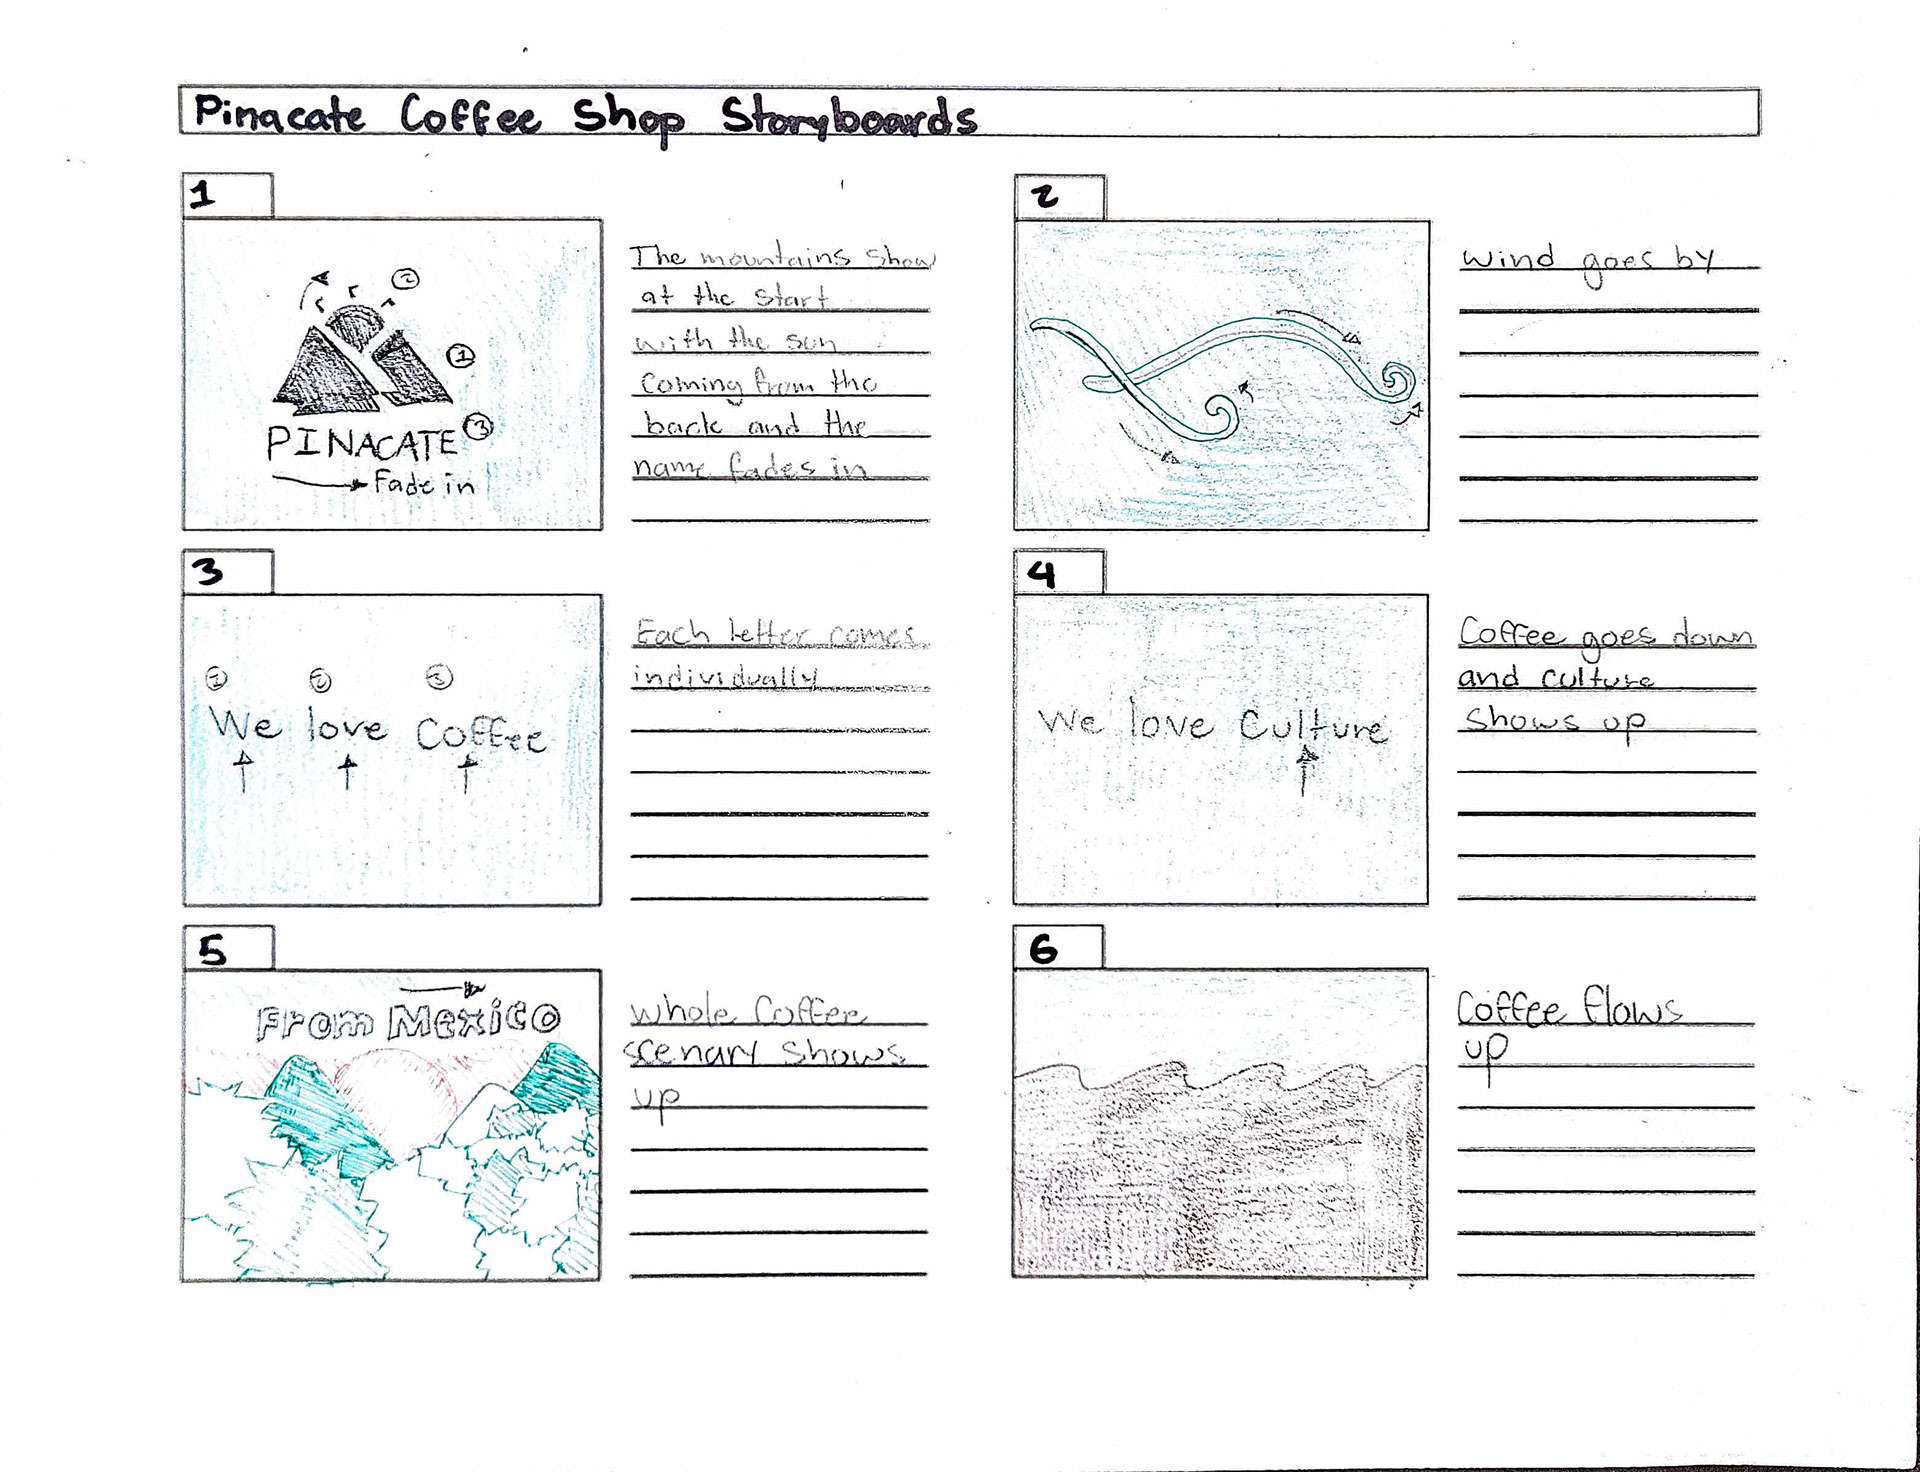 Pinacate Coffee Shop Storyboards
1
②
①
PINACATE ③
Fade in
The mountains show
at the start
with the sun
coming from the
back and the
name fades in
2
wind goes by
3
① ② ③
We love Coffee
Each letter comes
individually
4
We love Culture
Coffee goes down
and culture
shows up
5
From Mexico
whole Coffee
scenary shows
up
6
Coffee flows
up